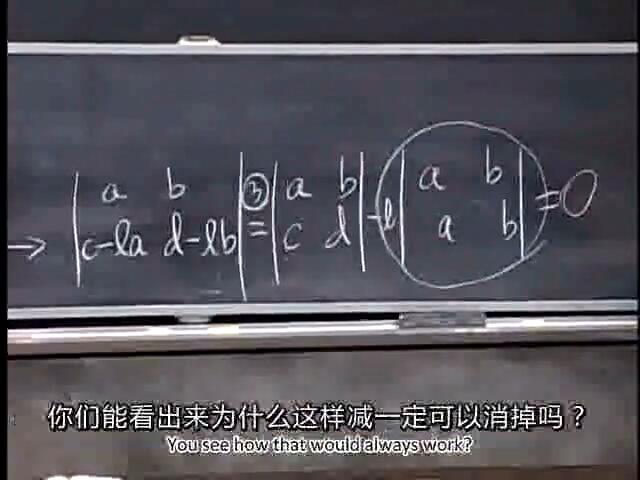 a b ③ a b a b
→ c-la d-lb = c d -l a b = 0
你们能看出来为什么这样减一定可以消掉吗？
You see how that would always work?